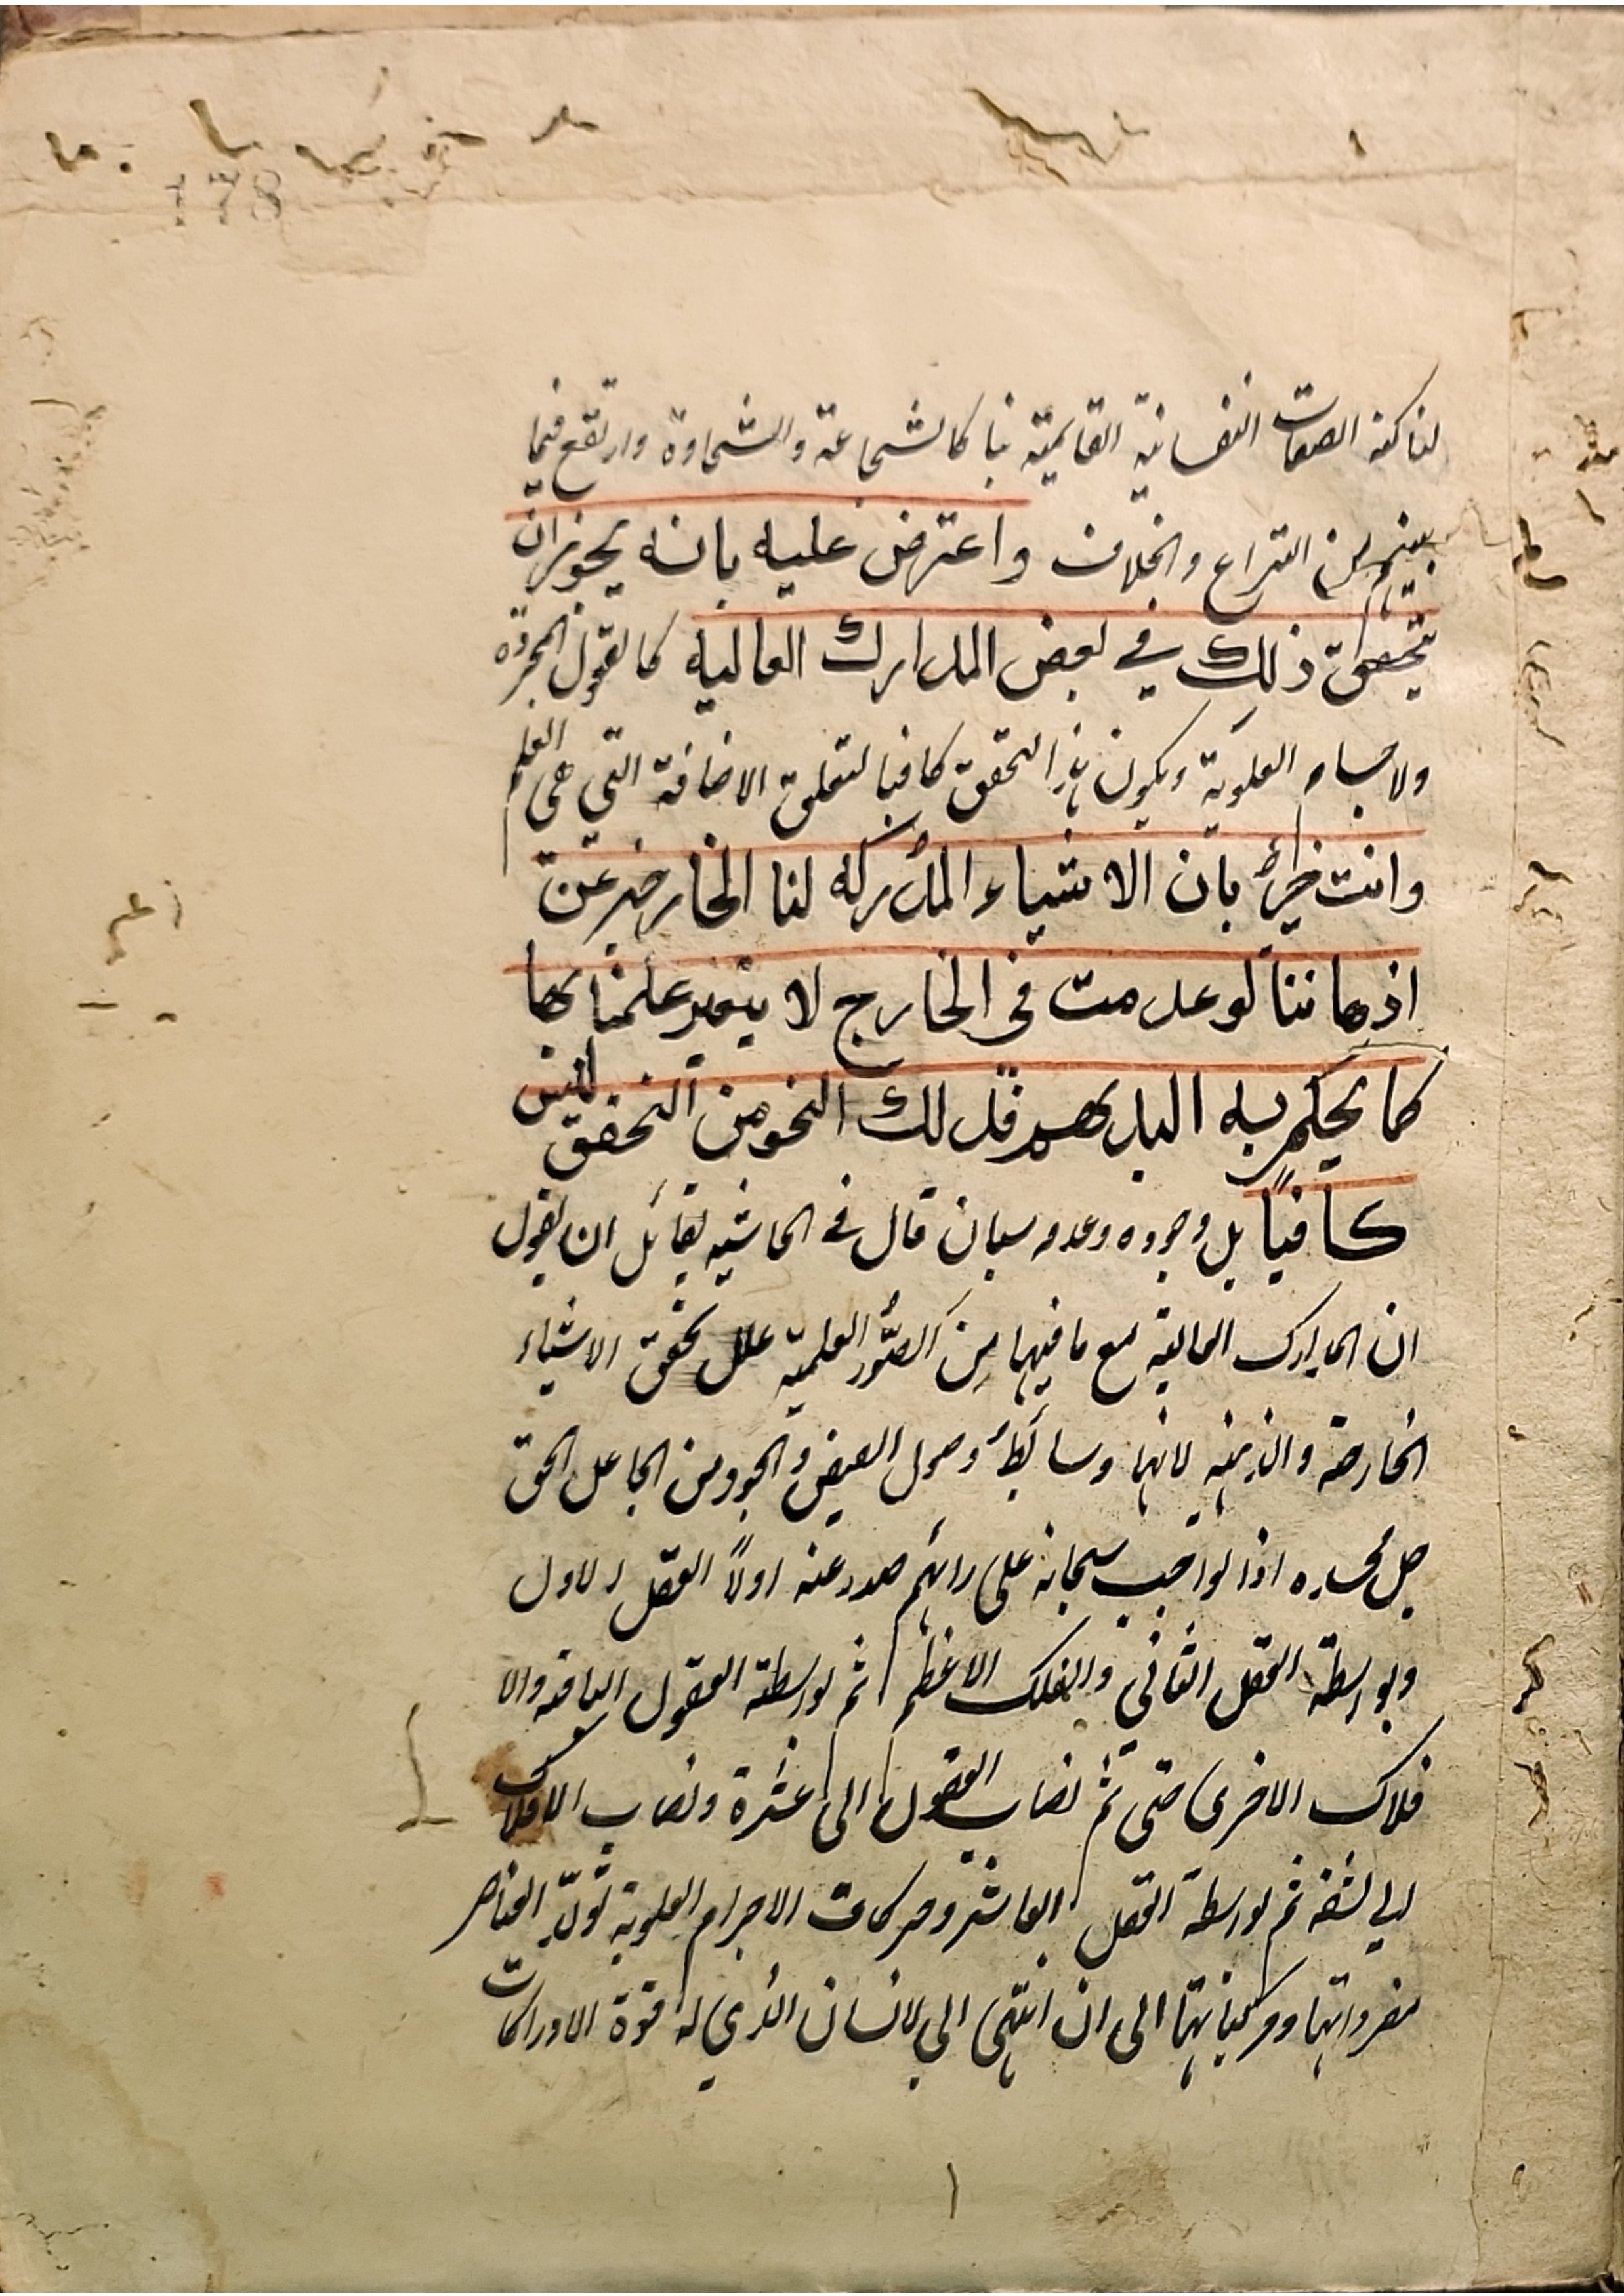 178
لنا كنه الصفات النفسانية القائمة بنا كالشجاعة والسخاوة وارتفع فيما
بينهم من النزاع والخلاف واعترض عليه بانه يجوز ان
يتحقق ذلك في بعض المدارك العالية كالعقول المجردة
ولاجسام العلوية ويكون هذا التحقق كافيا لتعلق الاضافة التي هي العلم
وانت خبير بان الاشياء المدركة لنا الخارجة عن
اذهاننا لو عدمت في الخارج لا يتغير علمنا بها
كما يحكم به البديهة فذلك النحو من التحقق ليس
كافيا بل وجوده وعدمه سيان قال في الحاشية لقائل ان يقول
ان المدارك العالية مع ما فيها من الصور العلمية علل تحقق الاشياء
الخارجة والذهنية لانها وسائط وصول الفيض والجود من الجاعل الحق
جل مجده اذ الواجب سبحانه على رائهم صدر عنه اولا العقل الاول
وبواسطة العقل الثاني والفلك الاعظم ثم بواسطة العقول الباقية والا
فلاك الاخرى حتى تم نصاب العقول الى عشرة ونصاب الافلاك
الى تسعة ثم بواسطة العقل العاشر وحركات الاجرام العلوية تولد العناصر
مفرداتها ومركباتها الى ان انتهى الى الانسان الذي له قوة الادراكات